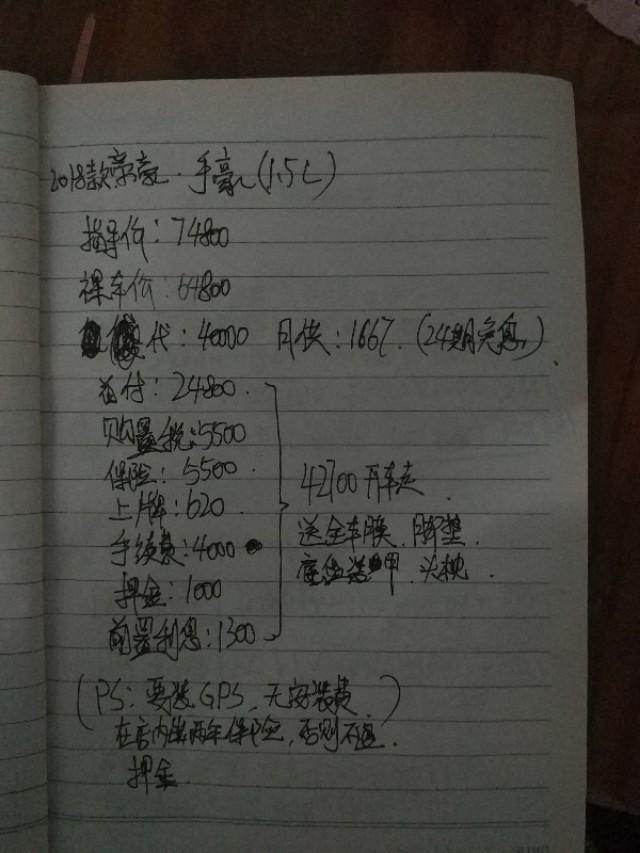 2018款帝豪·手豪(1.5L)
指导价:74800
裸车价:64800
贷:40000 月供:1667.(24期免息)
首付:24800.
购置税:5500
保险:5500.
上牌:620.
手续费:4000
押金:1000
前置利息:1300
42700开车走.
送全车膜.脚垫.
座垫 头枕.
(PS:要装GPS,无安装费.)
在店内出两年保险,否则不退.
押金.